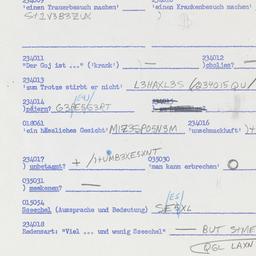 'einen Trauerbesuch machen' 'einen Krankenbesuch machen'
S12V3B3ZUX
234011 234012
"Der Goj ist ..." ('krank') — )holien?
234013
'zum Trotze stirbt er nicht' L3HAXL3S (Q34015QU/
234014
)pejern?
018061 234016
'ein häßliches Gesicht' MIZ3SPOSN3M 'unschmackhaft'
234017 035030
) unbetamt? + /1+UMB3XESXNT 'man kann erbrechen' O
035031
) mekenen? —
015054 /ES/
Ssechel (Aussprache und Bedeutung) SESXL
234018
Redensart: "Viel ... und wenig Ssechel" — BUT S+ME
QGL LAXN